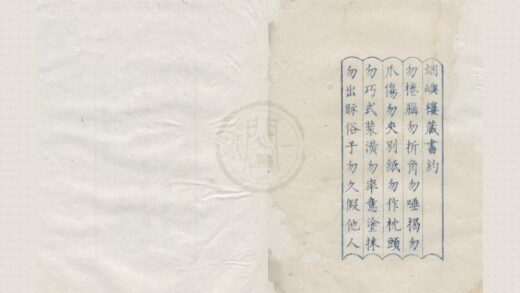 烟嶼樓藏書約
勿捲腦勿折角勿唾揭勿
爪傷勿夾別紙勿作枕頭
勿巧式裝潢勿率意塗抹
勿出眎俗子勿久假他人